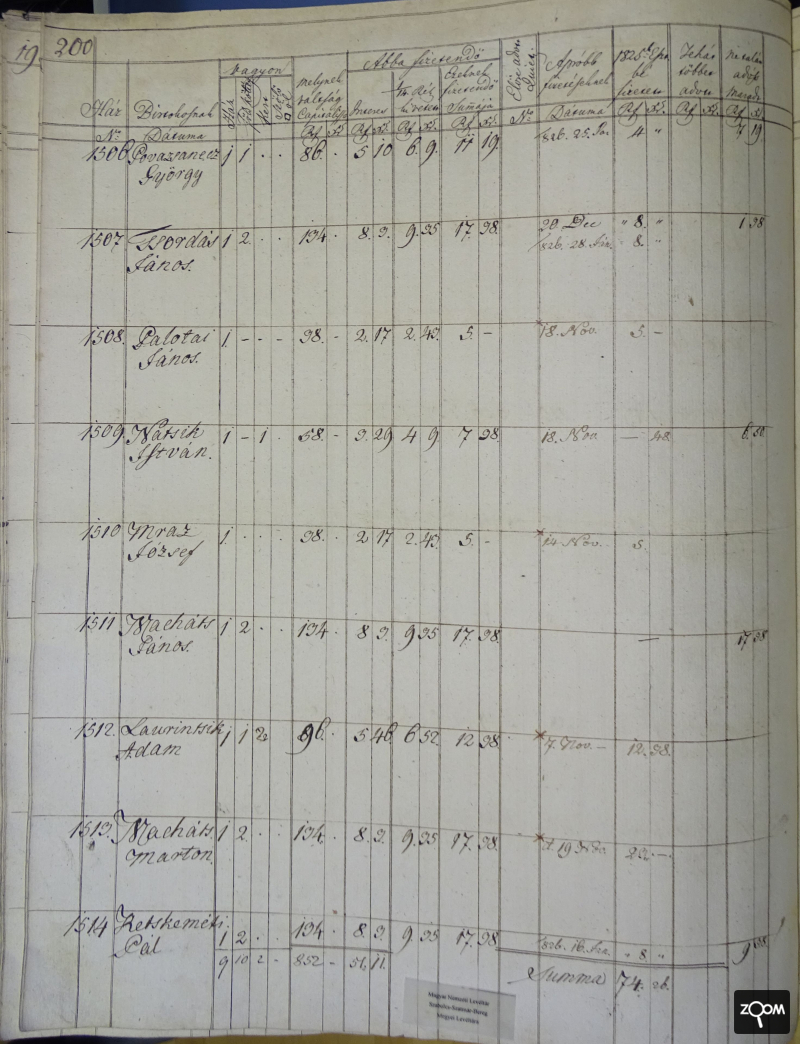 19 200
Vagyon
Abba fizetendő
Ház
N°
Birtokosnak
Dátuma
Ház
melynek
valóság
Capitálissa
Interes
Ezeknek
fizetendő
Summája
Apróbb
fizetéseknek
Dátuma
1825
Tehát
többet
adott
adós
marad
Rf Xr Rf Xr Rf Xr Rf Xr N° Rf Xr Rf Xr Rf Xr
1506 Povazsanecz 1 1 . . 86 . 5 10 6. 9. 11 19. 826. 25. Ja. 4 " 7 19.
György
1507 1 2. . . 134 . 8. 3. 9. 35 17. 38. 30 Dec " 8. "
János. 826. 28. Jan. 8. " 1 38
1508. Palotai 1. - - - 38. - 2. 17 2. 43. 5. - 18. Nov. 5. -
János.
1509. Nátsik 1 - 1 . 58. - 3. 29 4 9 7 38. 18. Nov. — 48. 6. 50
István.
1510 Mraz 1 . . . 38. . 2 17 2. 43. 5. - 14. Nov. 5.
József
1511 Macháts 1 2 . . 134 . 8 3. 9 35 17. 38. — 17 38
János.
1512. Laurintsik 1 1 2 96. . 5 46. 6 52. 12 38. 7. Nov. - 12. 38.
Adam
1513. Macháts 1 2. . . 134 . 8. 3. 9. 35 17. 38. —
Marton.
1514 Ketskeméti 1 2. . 134 . 8. 3. 9. 35 17. 38 826. 16. " 8 " 9 38
Pál
9 10 2 - 852 - 51. 11.
Summa 74. 26.
Magyar Nemzeti Levéltár
Szabolcs-Szatmár-Bereg
Megyei Levéltára
ZOOM